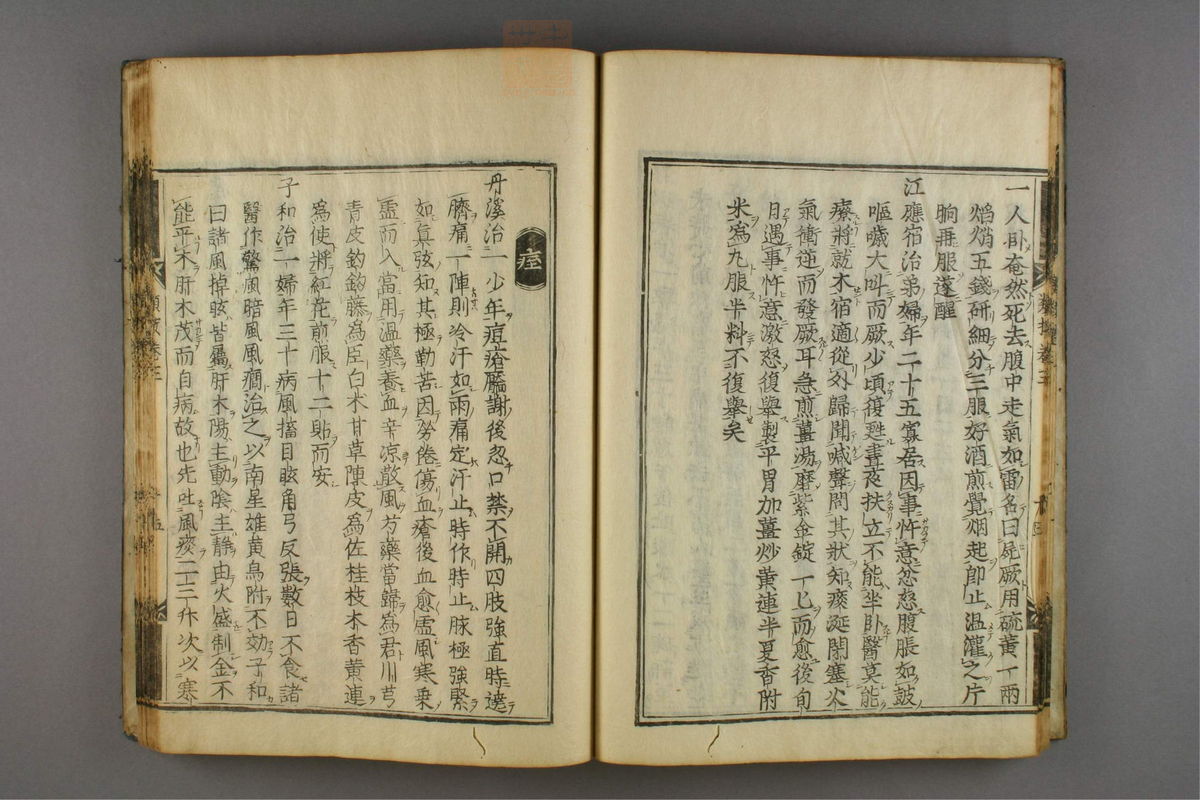 一人卧奄然死去腹中走氣如雷名曰屍厥用硫黄一兩
焔焇五錢研細分三服好酒煎覺烟起即止温灌之片
晌再服遂醒
江應宿治弟婦年二十五寡居因事忤意忿怒腹脹如鼓
嘔噦大叫而厥少頃復甦晝夜扶立不能坐卧醫莫能
療將就木宿適從外歸聞喊聲問其狀知痰涎閉塞火
氣衝逆而發厥耳急煎薑湯磨紫金錠一匕而愈後旬
月遇事忤意激怒復舉製平胃加薑炒黄連半夏香附
米為丸服半料不復舉矣
痙
丹溪治一少年痘瘡靨謝後忽口禁不開四肢強直時遶
臍痛一陣則冷汗如雨痛定汗止時作時止脉極強緊
如真弦知其極勒苦因勞倦傷血瘡後血愈虚風寒乗
虚而入當用温藥養血辛凉散風芍藥當歸為君川芎
青皮釣鈎藤為臣白术甘草陳皮為佐桂枝木香黄連
為使將紅花煎服十二貼而安
子和治一婦年三十病風搐目眩角弓反張數日不食諸
醫作驚風暗風風癇治之以南星雄黄烏附不効子和
曰諸風掉眩皆屬肝木陽主動陰主靜由火盛制金不
能平木肝木茂而自病故也先吐風痰二三升次以寒